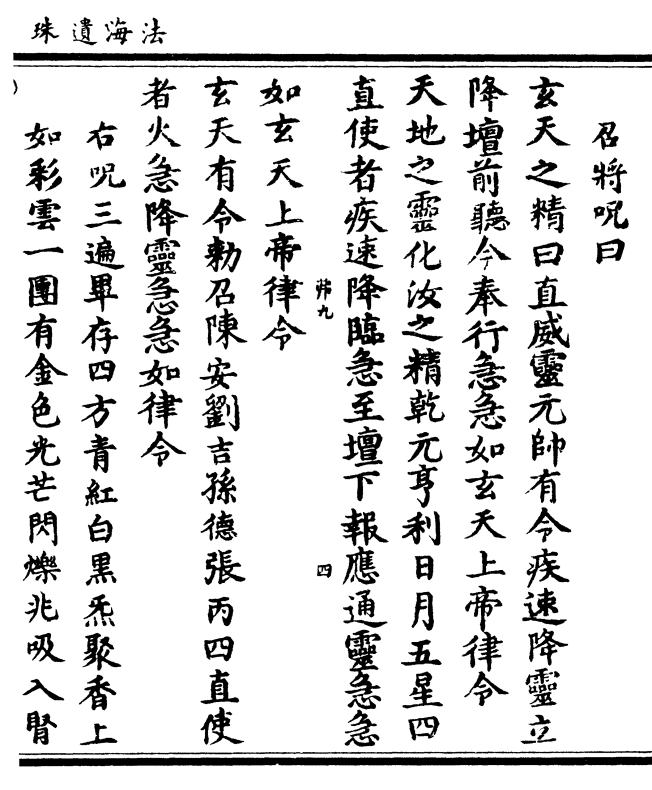 法海遺珠
召將呪曰
玄天之精曰直威靈元帥有令疾速降靈立
降壇前聽令奉行急急如玄天上帝律令
天地之靈化汝之精乾元亨利日月五星四
直使者疾速降臨急至壇下報應通靈急急
九
四
如玄天上帝律令
玄天有令勅召陳安劉吉孫德張丙四直使
者火急降靈急急如律令
右呪三遍畢存四方青紅白黑炁聚香上
如彩雲一團有金色光芒閃爍兆吸入腎